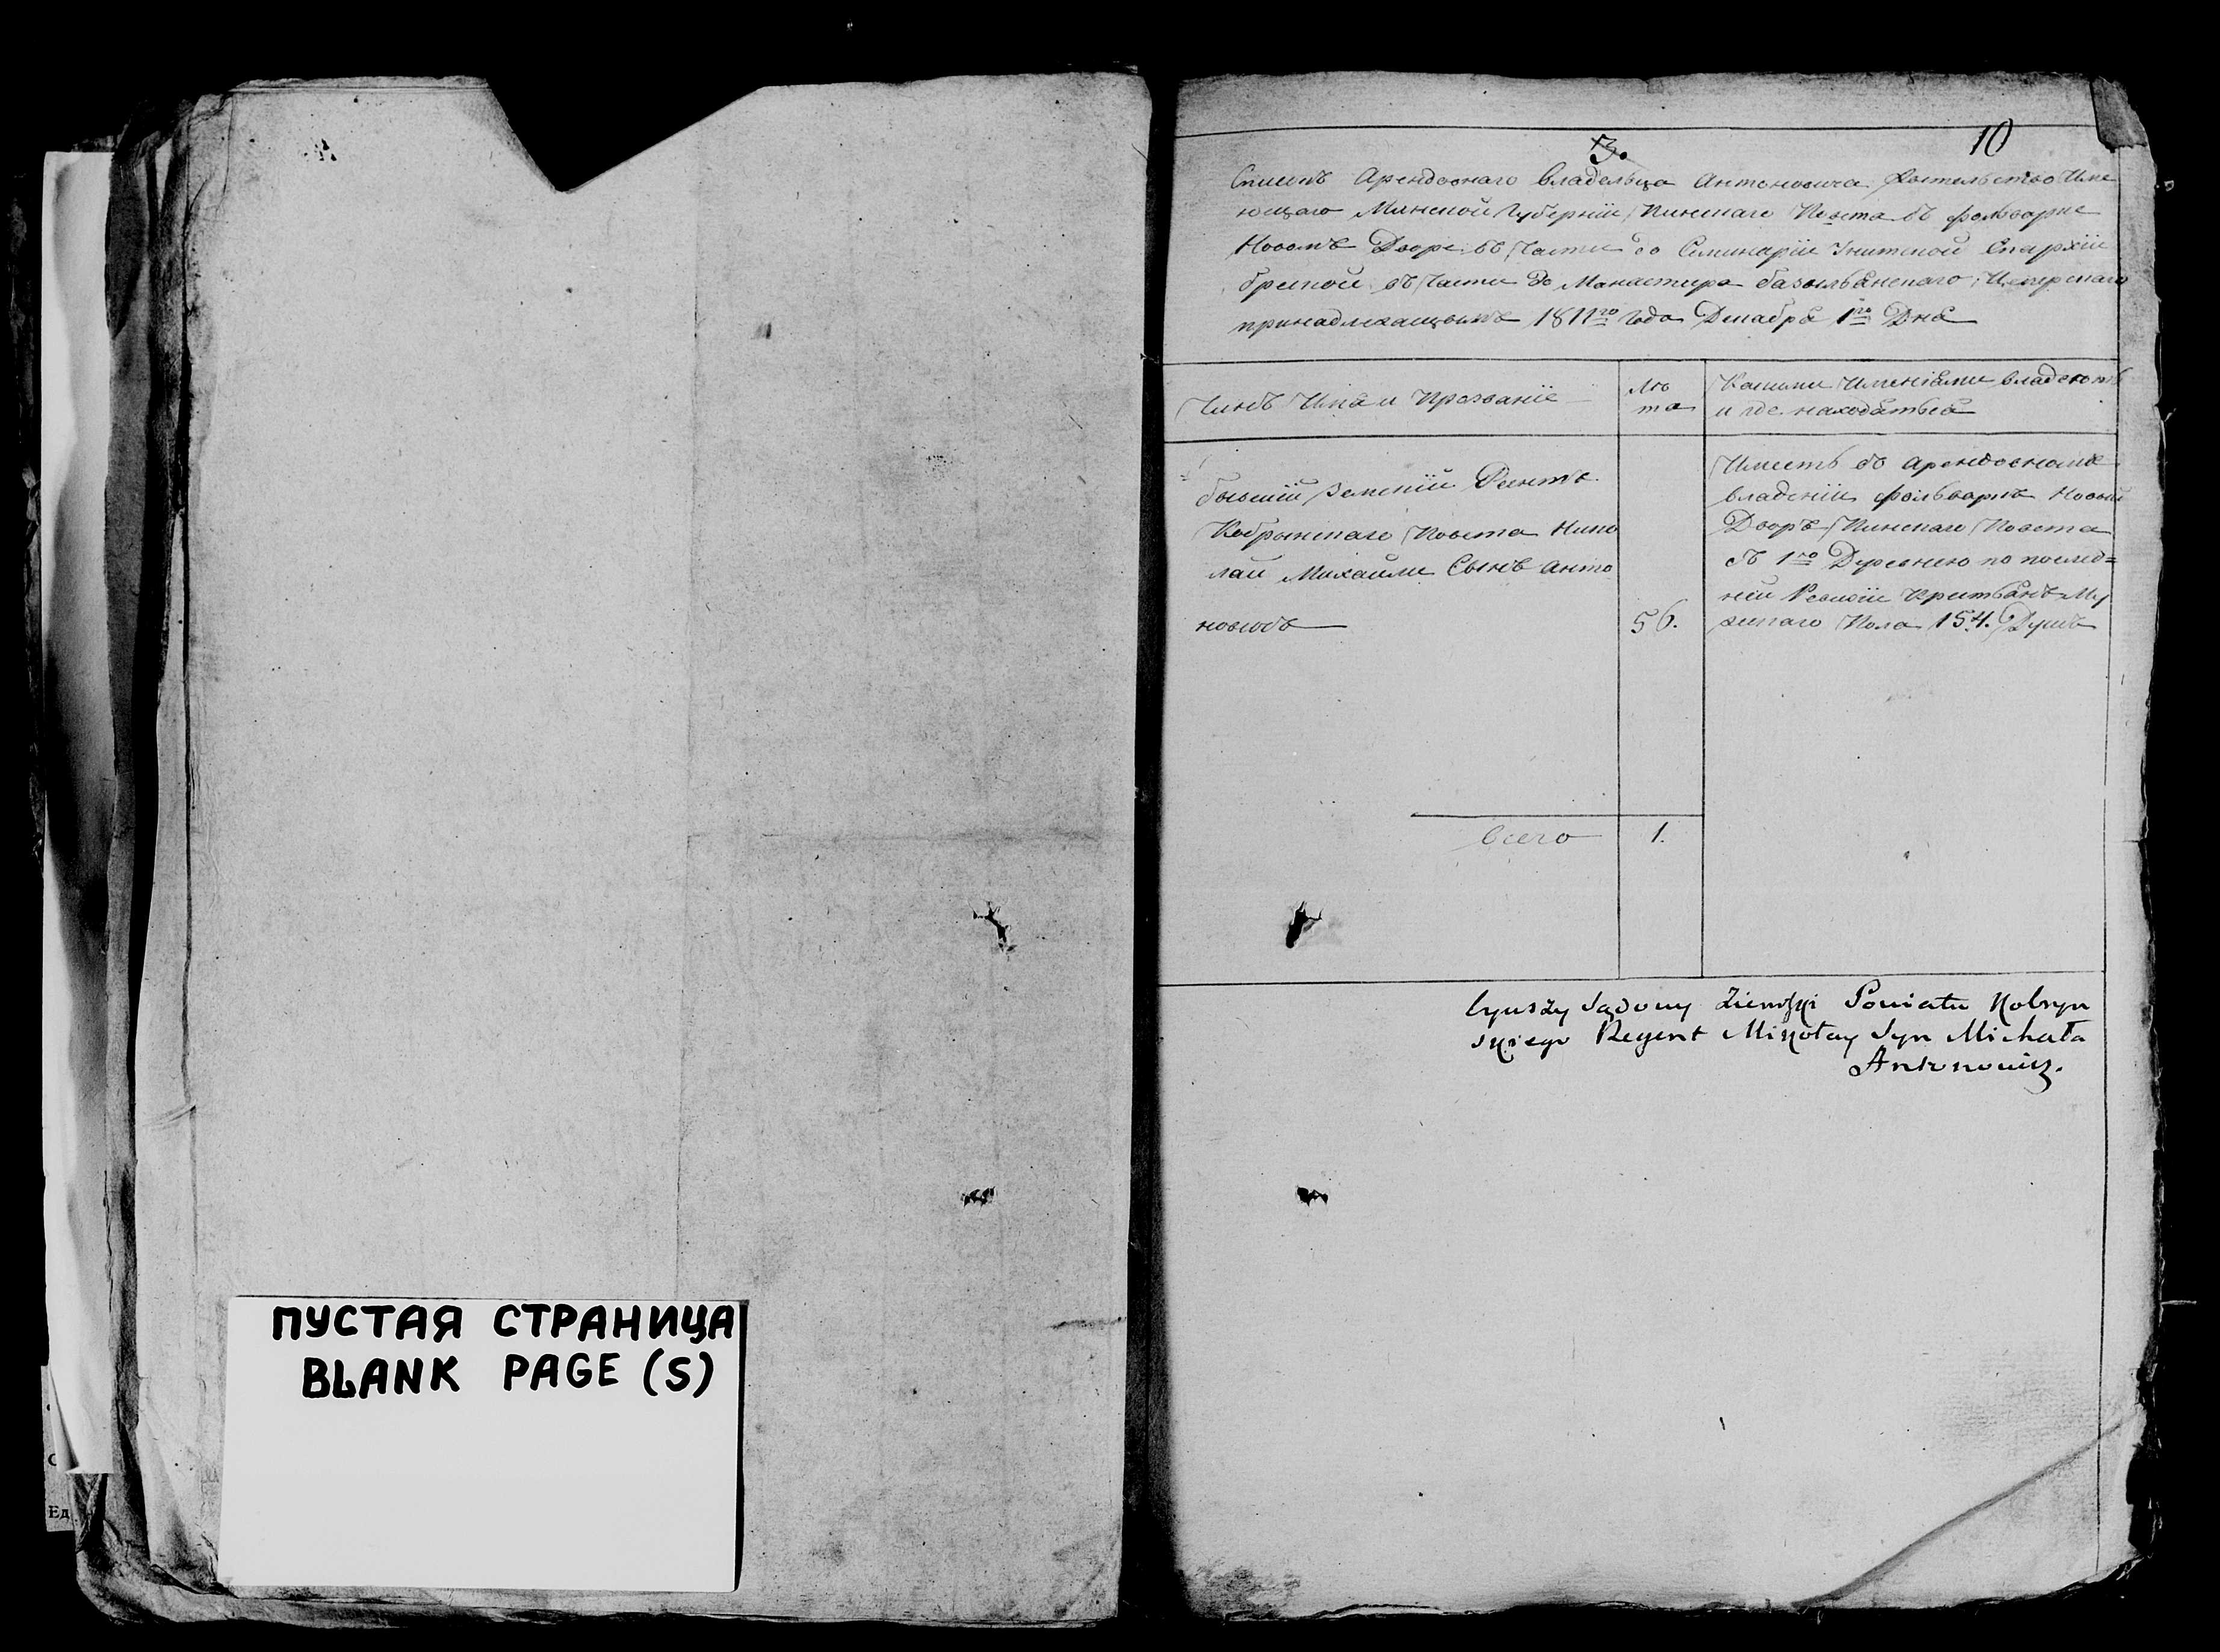 ПУСТАЯ СТРАНИЦА
BLANK PAGE (S)
3.
10
Списокъ Арендовнаго владельца Антоновича жительство Име
ющаго Минской Губерніи Пинскаго Повета въ фольварке
Новомъ Дворе въ Части до Семинаріи Унитской Епархіи
брецкой въ Части до Манастира базыльянскаго
принадлежащымъ 1811го Года Декабря 1го Дня
Чинъ Имя и Прозваніе
Ле
та
Какими Именіями владеютъ
и где находяться
бывшій Земскій Реентъ
Кобрынскаго Повета Нико
лай Михайли Сынъ Анто
новичъ
56.
Имеетъ въ Арендовномъ
владеніи фольваркъ Новый
Дворъ Пинскаго Повета
съ 1ю Деревнею по послед=
ней Ревизіи Крестьянъ Му
жескаго Пола 154. Душъ
Всего
1.
bywszy Sądowy Ziemski Powiatu Kobryn
skiego Regent Mikołay Syn Michała
Antonowicz.